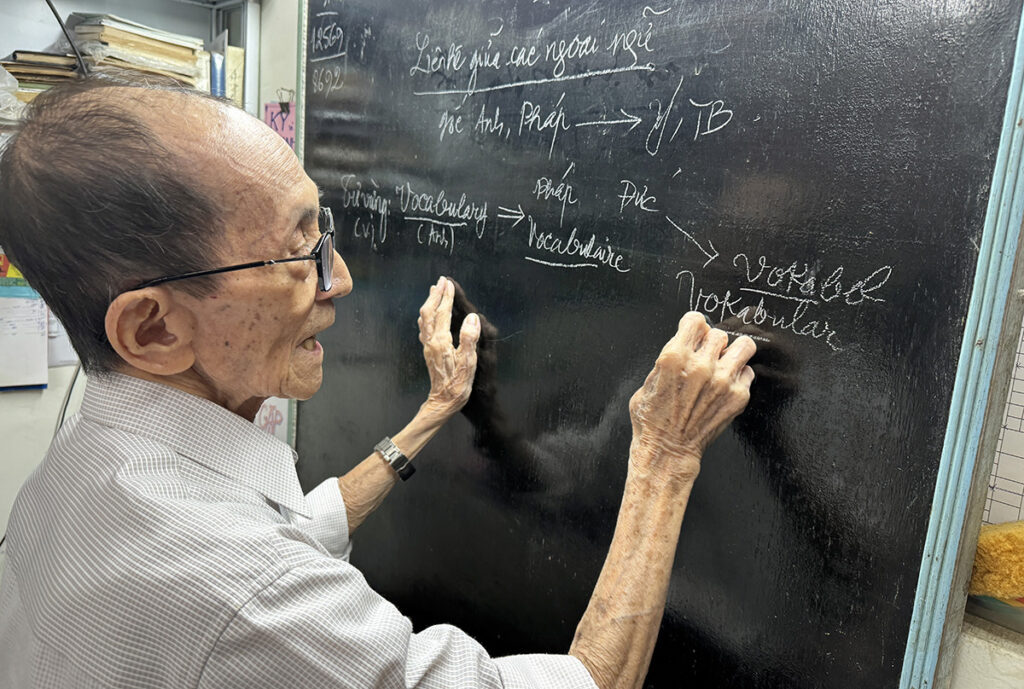 12569
8692
Liên hệ giữa các ngoại ngữ
gốc Anh, Pháp → Ý, TB
Từ vựng Vocabulary ⇒ Pháp Đức
(V) (Anh) Vocabulaire
Vokabel
Vokabular